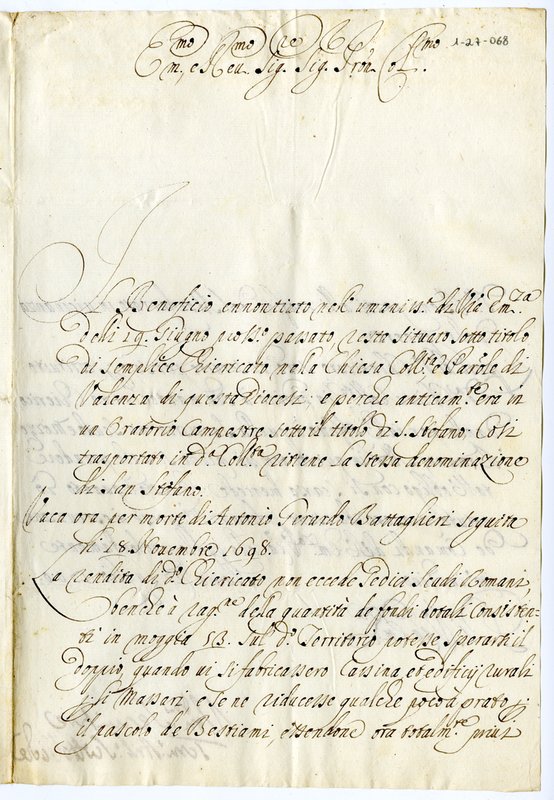 1-27-068
Em.mo e Reu.mo Sig.re Sig. Pron Col.mo
Il Beneficio ennontiato nell'umaniss.a di V'ra Em.za
delli 19. Giugno pross.o passato, resta situato sotto titolo
di semplice Chiericato nella Chiesa Coll.ta e Paro'le di
Valenza di questa Diocesi, e perche anticam.te era in
un Oratorio Campestre sotto il titolo di S. Stefano. Cosi
trasportato in d.a Coll.ta ritiene la stessa denominazione
di San Stefano.
Vaca ora per morte di Antonio Gerardo Battaglieri seguita
li 18. Novembre 1698.
La rendita di d.o Chiericato non eccede sedici scudi Romani,
benche à rag.ne della quantità de fondi dotali consisten-
ti in moggia 53. sul d.o Territorio potesse sperarsi il
doppio, quando ui si fabricassero Cassina, et edificij rurali
p. li Massari, e se ne riducesse qualche poco à prato p.
il pascolo de Bestiami, essendone ora totalm.te priui